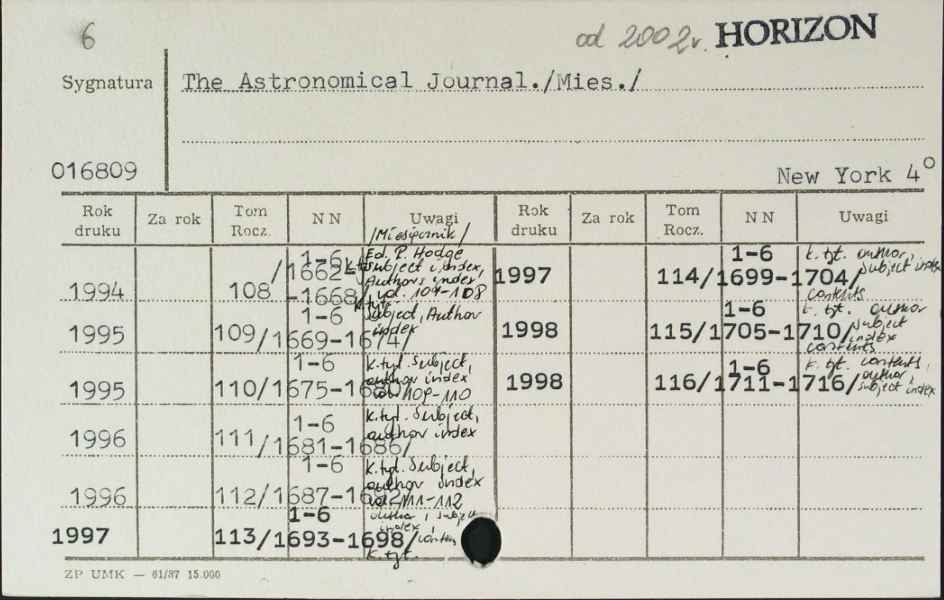 6
od 2002r. HORIZON
Sygnatura
The Astronomical Journal./Mies./
016809
New York 4°
Rok druku Za rok Tom Rocz. NN Uwagi Rok druku Za rok Tom Rocz. NN Uwagi
/Miesięcznik/
1994 108 /1662-1668/ 1-6 Ed. P. Hodge
Subject index,
Authors index
vol. 109-108
k.tyt.
1995 109/1669-1674/ 1-6 Subject, Author
index
1995 110/1675-1680 1-6 k.tyt. Subject,
author index
vol. 109-110
1996 111/1681-1686/ 1-6 k.tyt. Subject,
author index
1996 112/1687-1692/ 1-6 k.tyt. Subject,
author index
vol. 111-112
1997 113/1693-1698/ 1-6 author, subject
index
k. tyt.
1997 114/1699-1704/ 1-6 k. tyt. author,
subject index
contents
1998 115/1705-1710/ 1-6 k. tyt. author
subject
index
contents
1998 116/1711-1716/ 1-6 k. tyt. contents,
author,
subject index
ZP UMK — 61/87 15.000